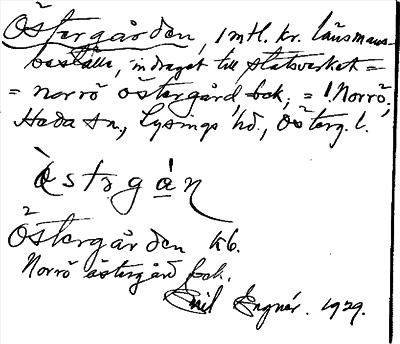 Östergården, 1 mtl. kr. länsmans-
boställe, indraget till statsverket =
= Norrö östergård bok, = 1. Norrö,
Häda sn., Lysings hd., Österg. l.
östrgán
Östergården kb.
Norrö östergård bok.
Emil Ingnér. 1929.